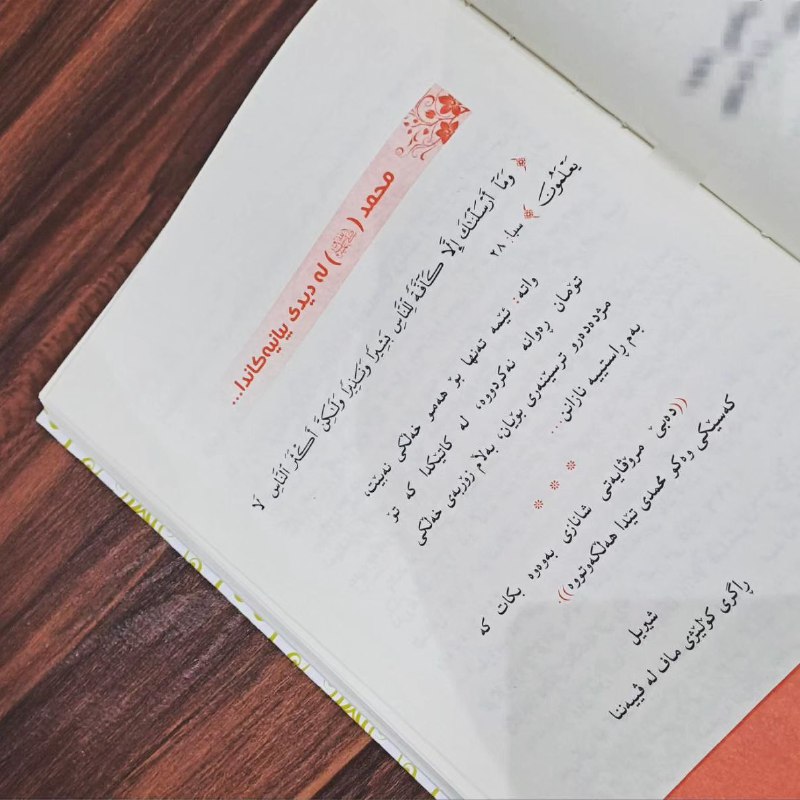 محمد (ﷺ) له دیدی بیانیه‌کاندا...
﴿ وَمَآ أَرْسَلْنَٰكَ إِلَّا كَآفَّةً لِّلنَّاسِ بَشِيرًا وَنَذِيرًا وَلَٰكِنَّ أَكْثَرَ ٱلنَّاسِ لَا
يَعْلَمُونَ ﴾ سبأ: ٢٨
واته: ئێمه ته‌نها بۆ هه‌مو خه‌ڵكی نه‌بێت،
تۆمان ڕه‌وانه نه‌كردووه، له كاتێكدا كه تۆ
مژده‌ده‌رو ترسێنه‌ری بۆیان، به‌ڵام زۆربه‌ی خه‌ڵكی
به‌م ڕاستییه نازانن...
* * *
((ده‌بێ مرۆڤایه‌تی شانازی به‌وه‌وه بكات كه
كه‌سێكی وه‌كو محمدی تێدا هه‌ڵكه‌وتووه)).
شیریل
ڕاگری كۆلێژی ماف له ڤییه‌ننا